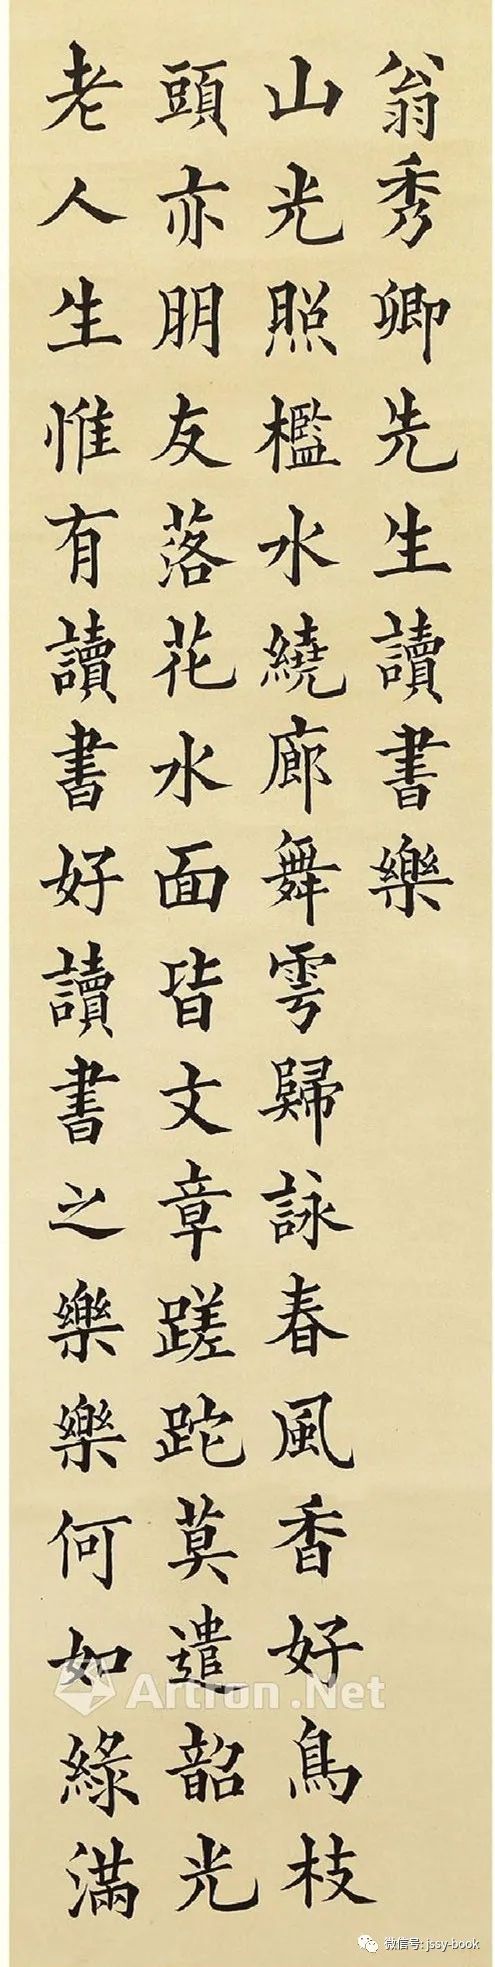 翁秀卿先生讀書樂
山光照檻水繞廊舞雩歸詠春風香好鳥枝
頭亦朋友落花水面皆文章蹉跎莫遣韶光
老人生惟有讀書好讀書之樂樂何如綠滿
Artron.Net
微信号: jssy-book